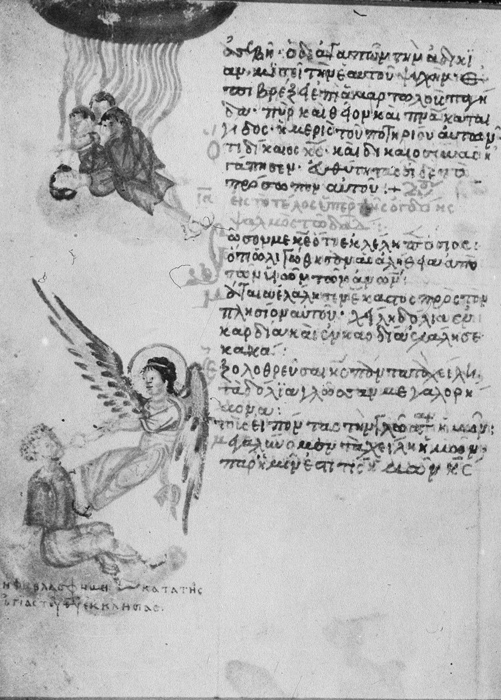 ἀσεβῆ· ὁ δὲ ἀγαπῶν τὴν ἀδικί
αν μισεῖ τὴν ἑαυτοῦ ψυχήν· Ἐ
πιβρέξει ἐπὶ ἁμαρτωλοὺς παγί
δας· πῦρ καὶ θεῖον καὶ πνα καται
γίδος· ἡ μερὶς τοῦ ποτηρίου αὐτῶν·
ὅτι δίκαιος κς· καὶ δικαιοσύνας ἠ
γάπησεν· εὐθύτητας εἶδεν τὸ
πρόσωπον αὐτοῦ :+
εἰς τὸ τέλος ὑπὲρ τῆς ὀγδόης
ψαλμὸς τῷ δαδ :
σῶσον με κε ὅτι ἐκλέλοιπεν ὅσιος :
ὅτι ὠλιγώθησαν αἱ ἀλήθειαι ἀπὸ
τῶν υἱῶν τῶν ἀνων :
μάταια ἐλάλησεν ἕκαστος πρὸς τὸν
πλησίον αὐτοῦ· χείλη δόλια ἐν
καρδία καὶ ἐν καρδία ἐλάλησε
κακά :
ἐξολοθρεύσαι κς πάντα τὰ χείλη
τὰ δόλια γλῶσσαν μεγαλορη
μονα :
τοὺς εἰπόντας τὴν γλῶσσαν ἡμῶν
μεγαλυνοῦμεν τὰ χείλη ἡμῶν
παρ ἡμῖν ἐστὶν τίς ἡμῶν κς
κατα της
αγιας του θυ εκκλησιας